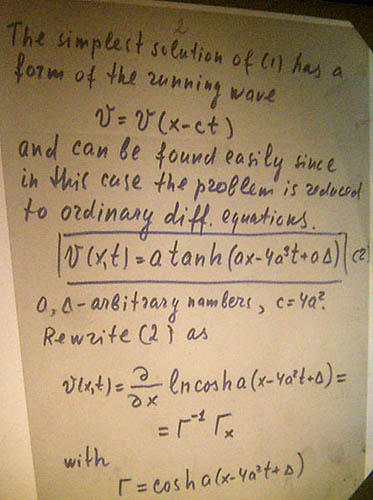 2
The simplest solution of (1) has a
form of the running wave
v = v(x-ct)
and can be found easily since
in this case the problem is reduced
to ordinary diff. equations.
v(x,t) = a tanh(ax-4a³t+aΔ) (2)
a, Δ - arbitrary numbers, c=4a².
Rewrite (2) as
v(x,t) = ∂/∂x ln cosh a(x-4a²t+Δ) =
= Γ⁻¹ Γₓ
with
Γ = cosh a(x-4a²t+Δ)